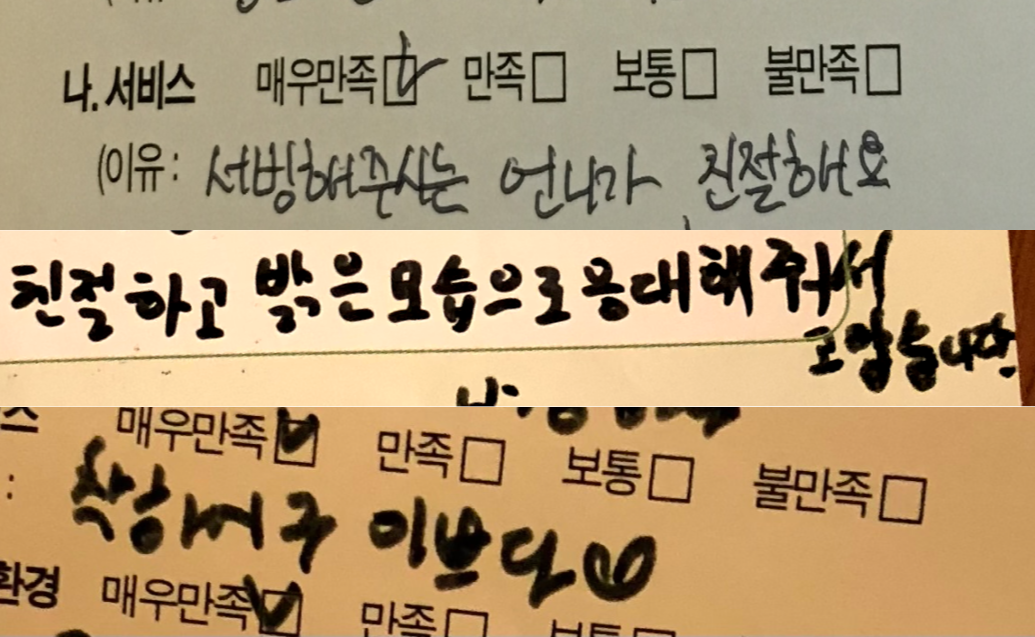 나. 서비스 매우만족☑ 만족□ 보통□ 불만족□
(이유: 서빙해주시는 언니가 친절해요
친절하고 밝은 모습으로 응대해줘서
고맙습니다.
스 매우만족☑ 만족□ 보통□ 불만족□
: 착하시구 이쁘다♡
환경 매우만족☑ 만족□ 보통□